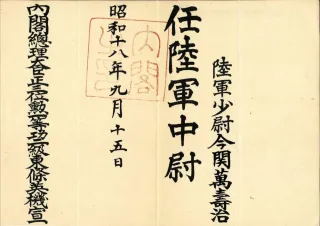 陸軍少尉今関萬壽治
任陸軍中尉
内閣
之印
昭和十八年九月十五日
内閣總理大臣正三位勲等功級東條英機宣